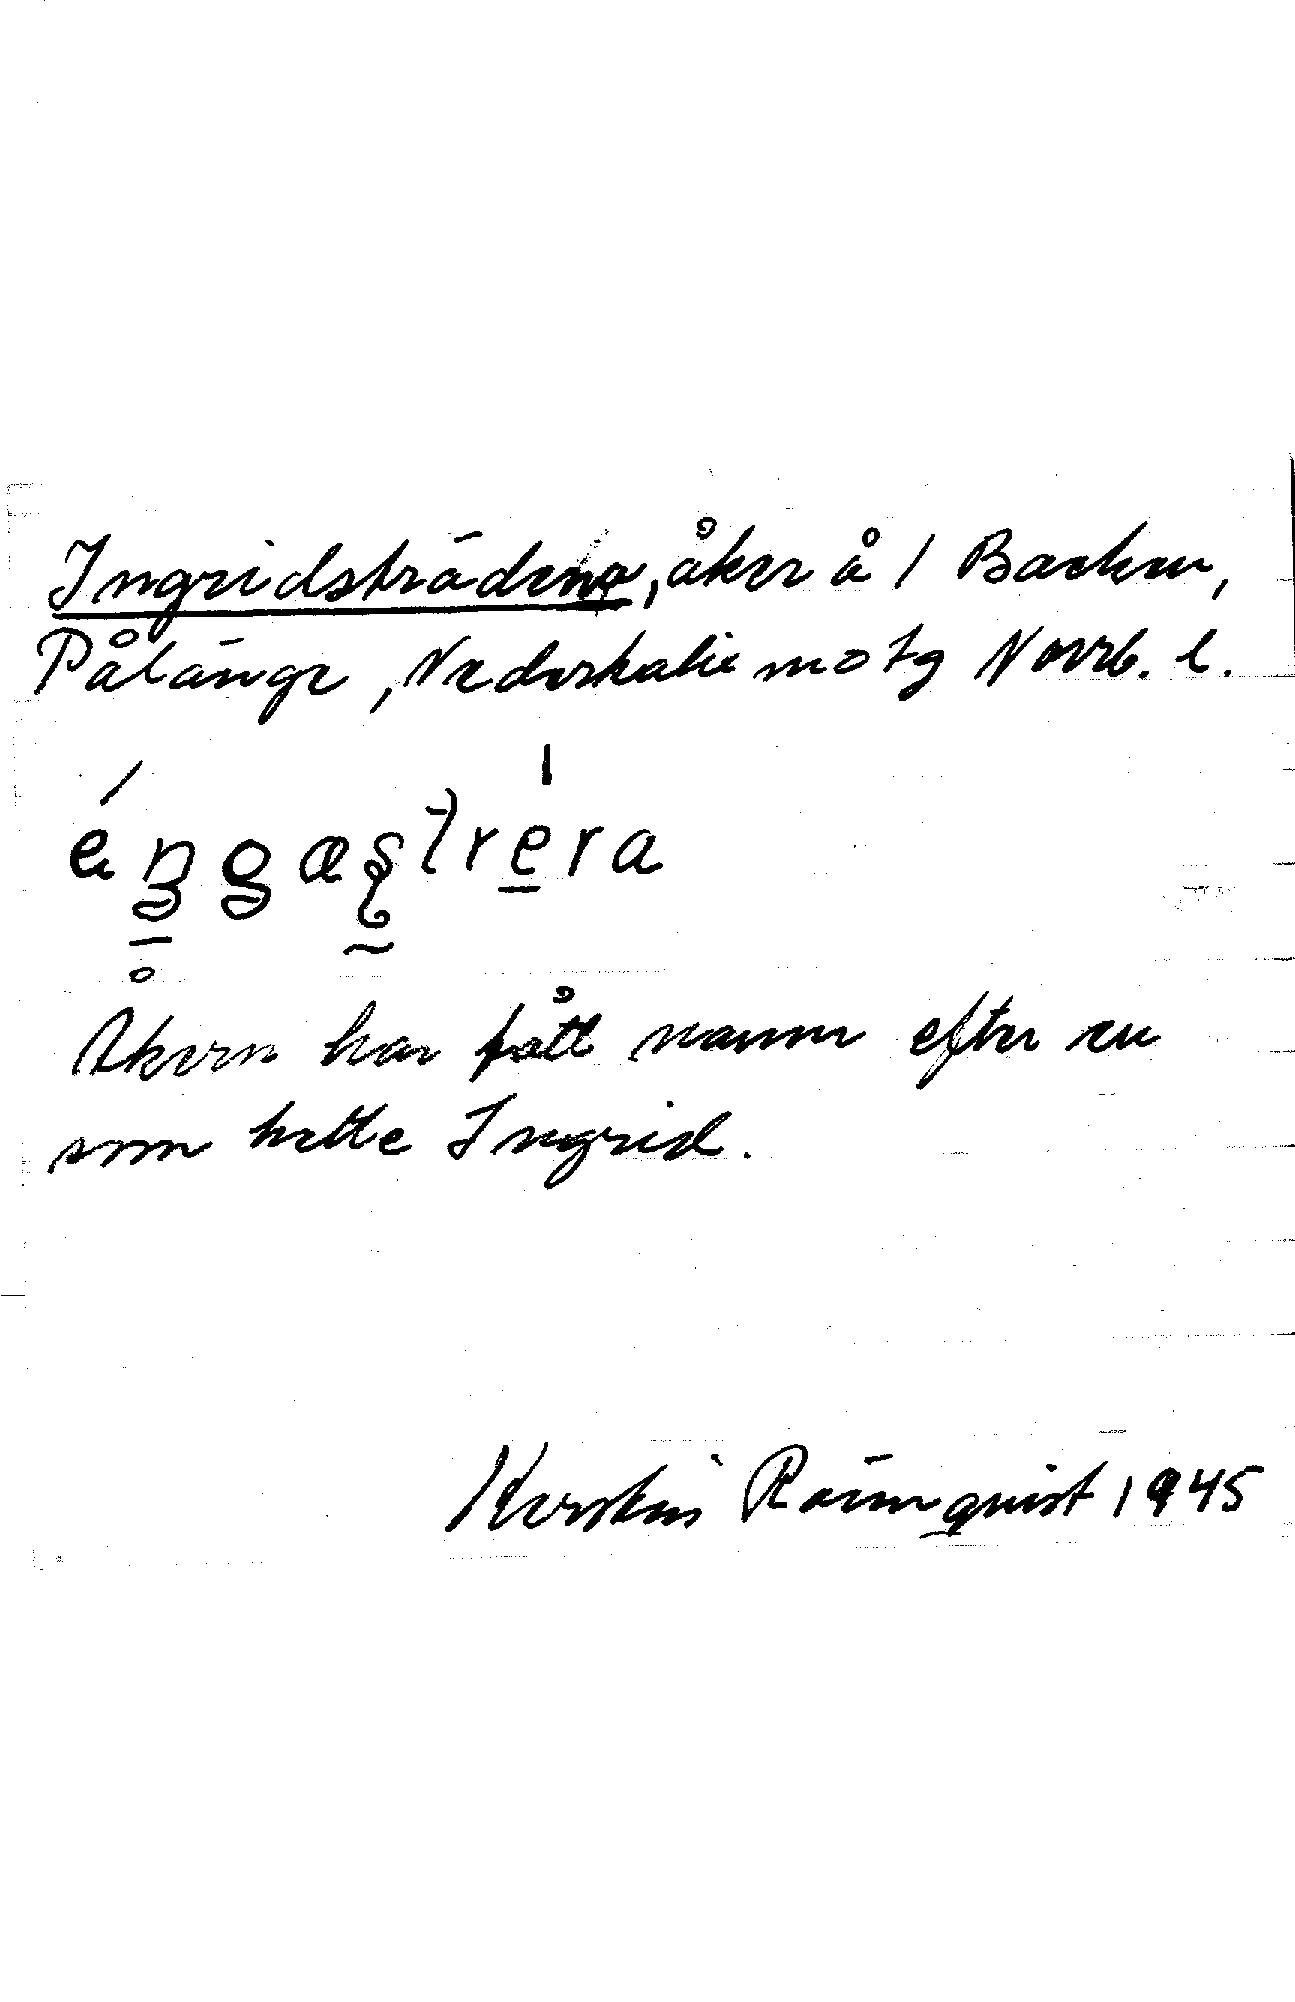 Ingridsträdena, åker å 1 Backen,
Pålänge, Nederkalix mo tg Norrb. l.
éngæstrera
Åkern har fått namn efter en
som hette Ingrid.
Kerstin Rönnquist 1945